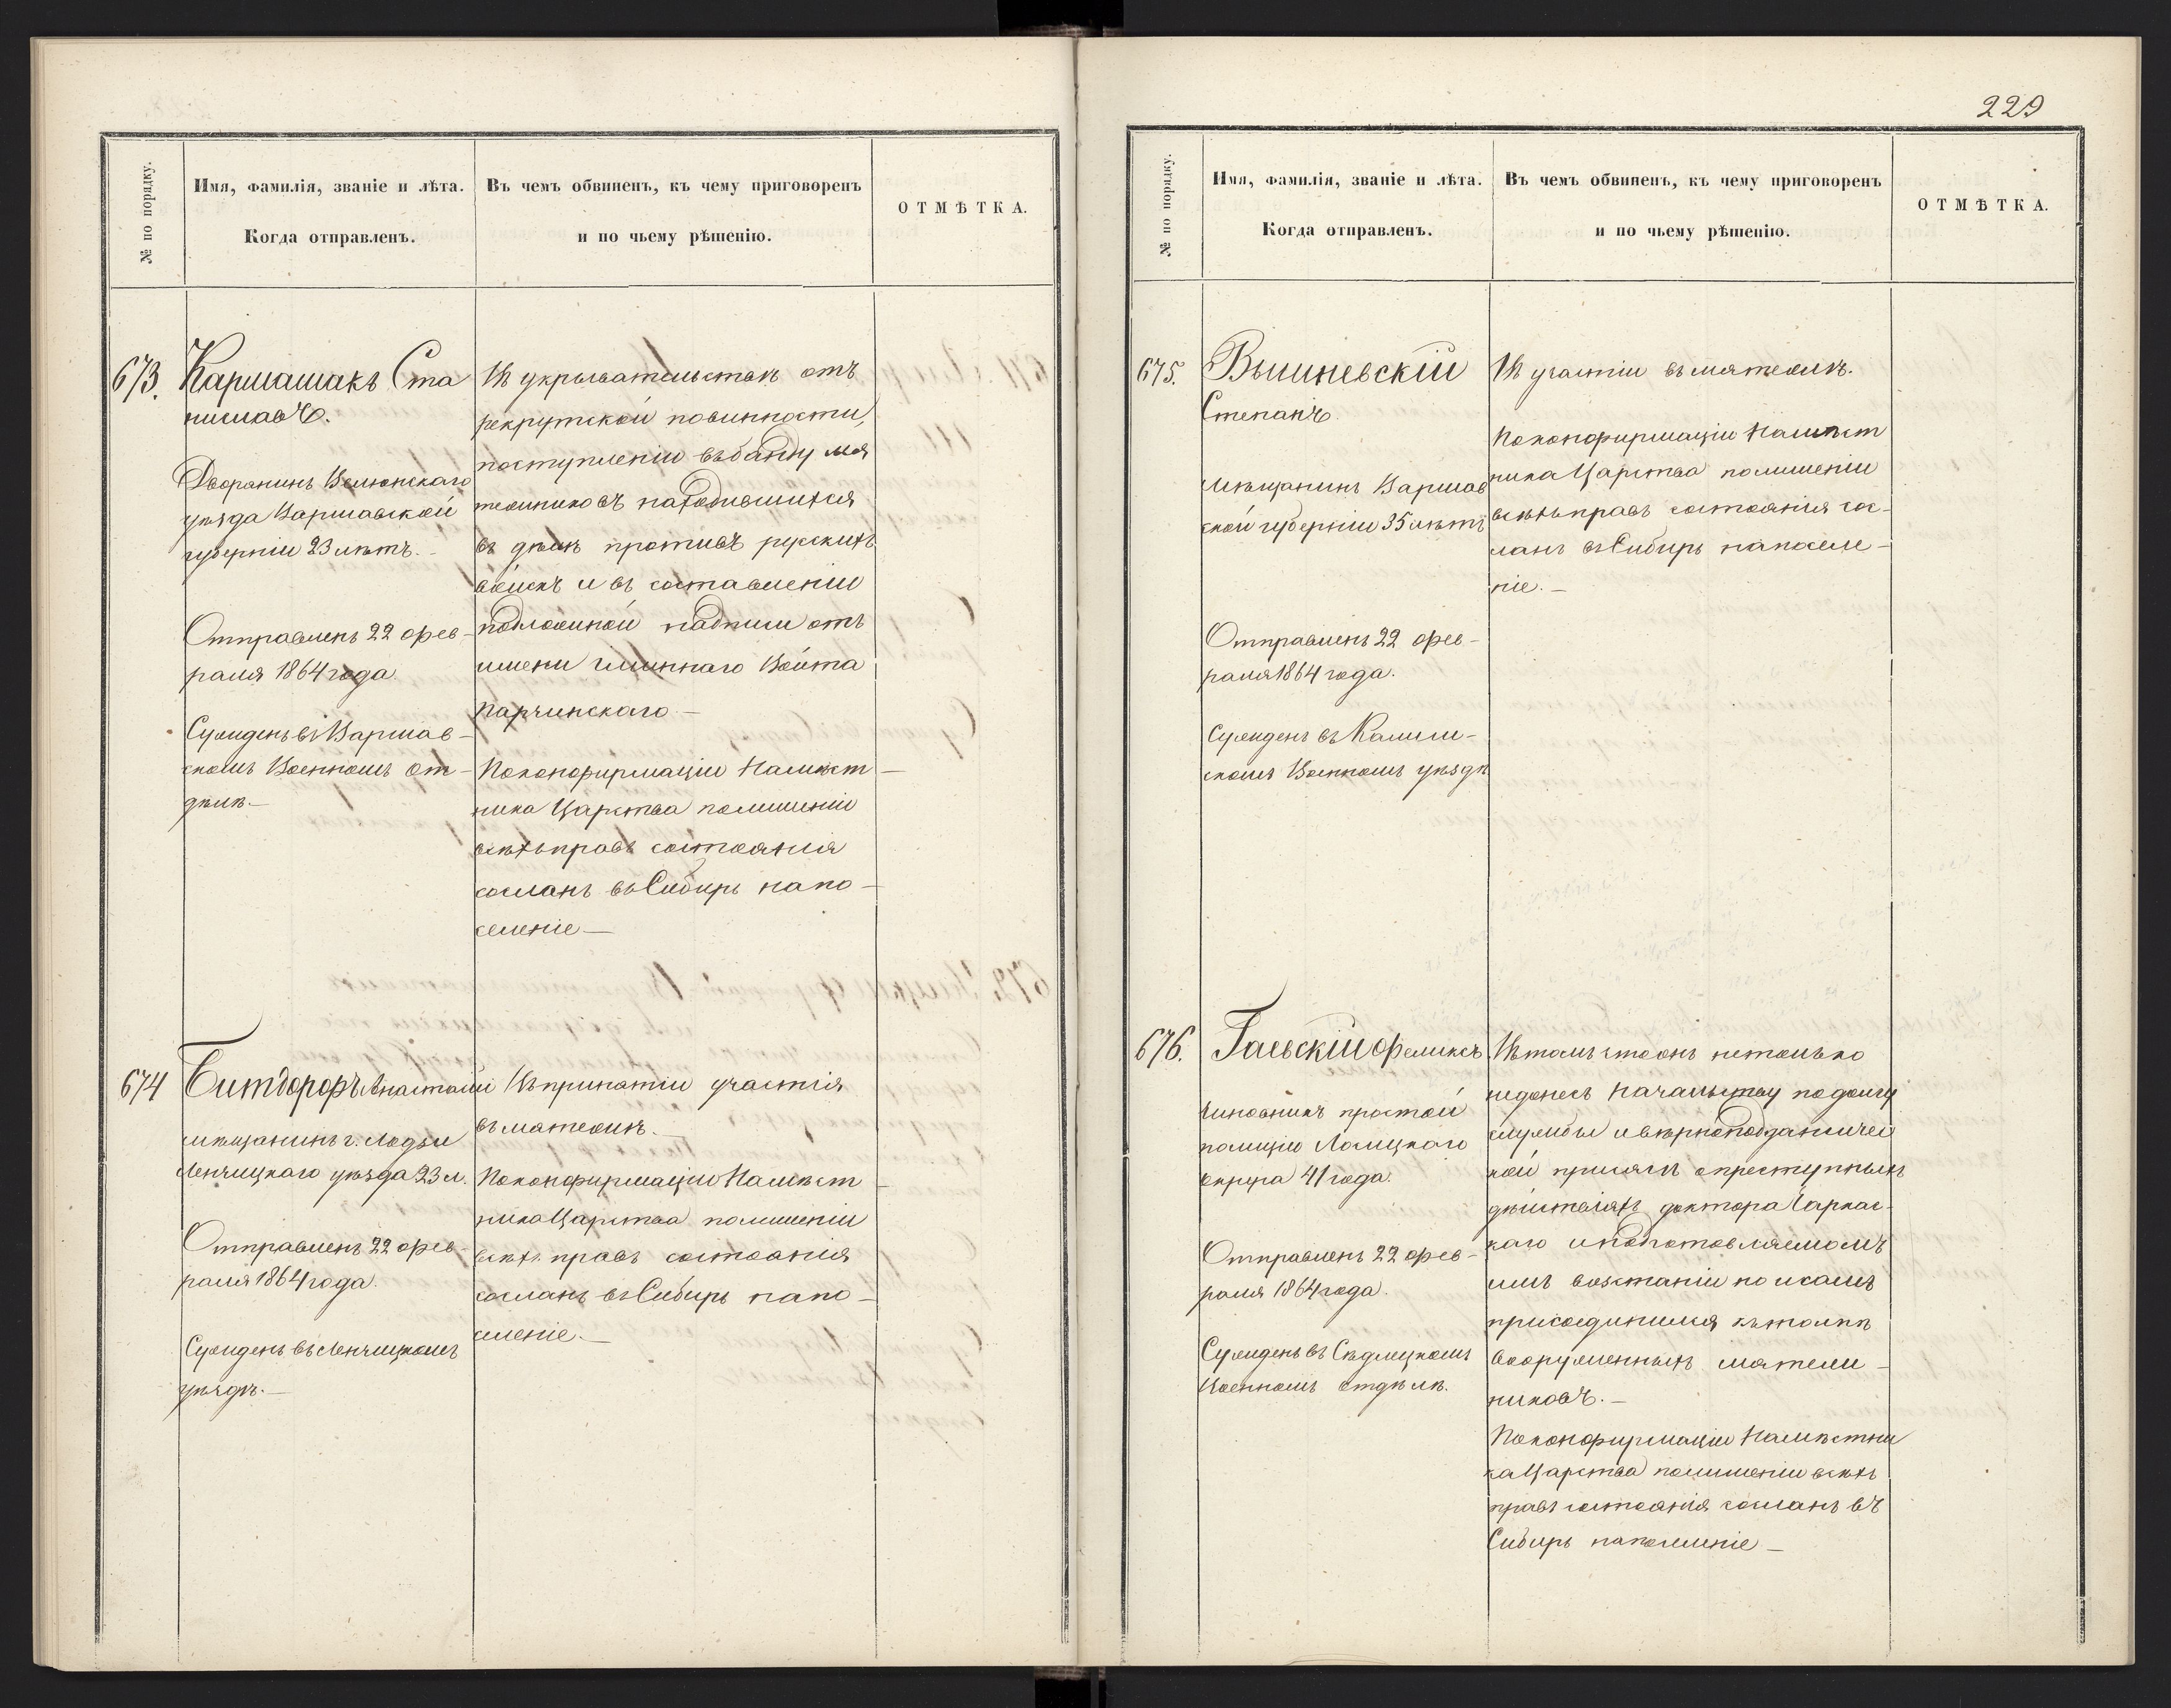 № по порядку.
Имя, фамилія, званіе и лѣта.
Когда отправленъ.
Въ чемъ обвиненъ, къ чему приговоренъ
и по чьему рѣшенію.
ОТМѢТКА.
673. Кармашакъ Ста
ниславъ.
Дворянинъ Велюнскаго
уѣзда Варшавской
губерніи 23 лѣтъ.
Отправленъ 22 фев-
раля 1864 года
Сужденъ въ Варшав-
скомъ Военномъ От-
дѣлѣ.—
Въ укрывательствѣ отъ
рекрутской повинности,
поступленіи въ банду мя
тежниковъ находившихся
въ дѣлѣ противъ русскихъ
войскъ и въ составленіи
подложной надписи отъ
имени гминнаго Войта
Парчинскаго—
По конфирмаціи Намѣст
ника Царства по лишеніи
всѣхъ правъ состоянія
сосланъ въ Сибирь на по-
селеніе—
674 Битдорфъ Анастасій
мѣщанинъ г. Лодзи
Ленчицкаго уѣзда 23 л.
Отправленъ 22 фев-
раля 1864 года.
Сужденъ въ Ленчицкомъ
уѣздѣ.—
Въ принятіи участія
въ мятежѣ.—
По конфирмаціи Намѣст
ника Царства по лишеніи
всѣхъ правъ состоянія
сосланъ въ Сибирь на по-
селеніе.—
229
№ по порядку.
Имя, фамилія, званіе и лѣта.
Когда отправленъ.
Въ чемъ обвиненъ, къ чему приговоренъ
и по чьему рѣшенію.
ОТМѢТКА.
675. Вышневскій
Степанъ.
Мѣщанинъ Варшав
ской губерніи 35 лѣтъ
Отправленъ 22 фев-
раля 1864 года.
Сужденъ въ Калиш-
скомъ Военномъ уѣздѣ
Въ участіи въ мятежѣ.
По конфирмаціи Намѣст
ника Царства по лишеніи
всѣхъ правъ состоянія сос-
ланъ въ Сибирь на поселе-
ніе.—
676. Гаевскій Феликсъ
Чиновникъ простой
полиціи Лосицкаго
округа 41 года.
Отправленъ 22 фев-
раля 1864 года.
Сужденъ въ Сѣдлецкомъ
Военномъ отдѣлѣ.
Въ томъ что онъ не только
не донесъ Начальству по долгу
службы и вѣрноподданичес
кой присяги о преступныхъ
дѣйствіяхъ доктора Чаркас-
каго и подготовляемомъ
имъ возстаніи но и самъ
присоединился къ толпѣ
вооруженныхъ мятеж-
никовъ.—
По конфирмаціи Намѣстни
ка Царства по лишеніи всѣхъ
правъ состоянія сосланъ въ
Сибирь на поселеніе—